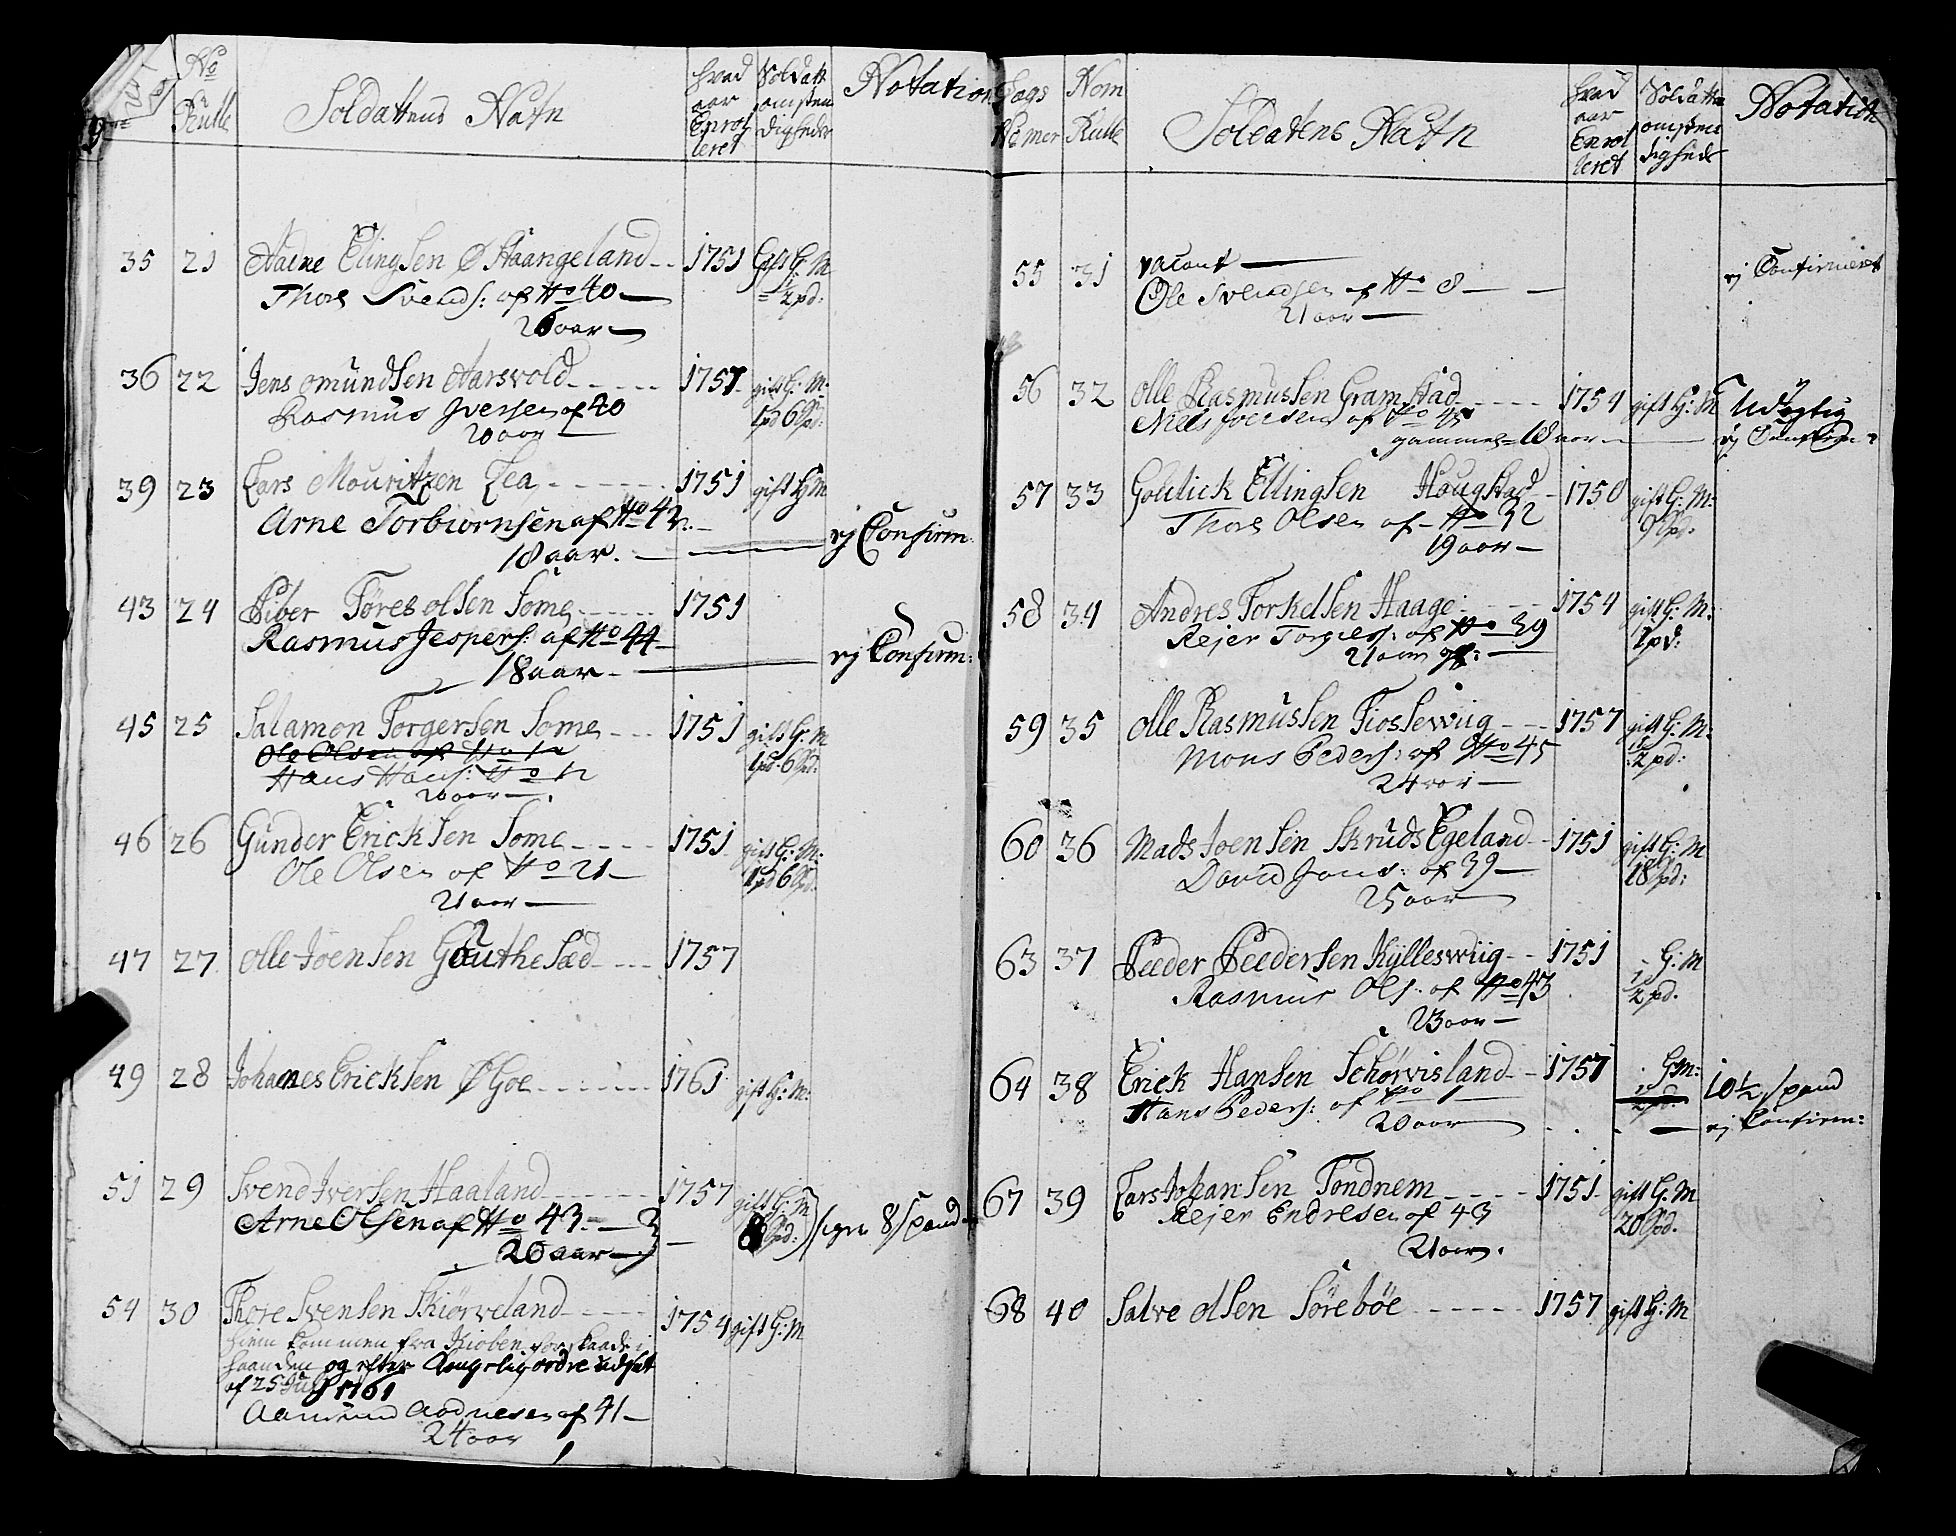 No
Rulle
Soldattens Nafn
hvad
aar
Enrol
leret
Soldatt
omsten
digheder
Notation
35 21 Aadne Elingsen Ø Haangeland 1751 Gift G: M
Thore Svends: af No 40 ½ pd:
26 aar
36 22 Jens omundsen Aarsvold 1757 gift G: M:
Rasmus Iversen af 40 1 pd 6
20 aar
39 23 Lars Mouritzen Lea 1751 gift G M
Arne Torbiornsen af No 42
18 aar. ej Confirm:
43 24 Piber Føres olsen Some 1751
Rasmus Jespers: af No 44
18 aar ej Confirm:
45 25 Salamon Torgersen Some 1751 gift G: M
Ole Olsen af No 12 1 pd 6
Hans Hans: No 12
20 aar
46 26 Gunder Ericksen Some 1751 gift G: M:
Ole Olsen af No 21 1 pd 6
21 aar
47 27 Olle Joensen Gouthesæd 1757
49 28 Johanes Ericksen Øgoe 1761 gift G: M:
51 29 Svend Iversen Haaland 1757 gift G: M
Arne Olsen af No 43 8 8 spand
20 aar
54 30 Thore Svensen Skiørveland 1754 gift G: M
hiem kommen fra Kioben skaade i
haanden og efter Kongelig ordre udsat
af 25 1761
Aamund Aadnesen af 41
24 aar
Lægs
Nomer
Nom
Rulle
Soldatens Nafn
hvad
aar
Enrol
leret
Soldatte
omsten
digheds
Notation
55 31 vacant ej Confirmeret
Ole Svendsen af No 8
21 aar
56 32 Olle Rasmussen Gramstad 1754 gift G: M Udøgtig
Niels Joensen af No 45
gammel 18 aar ej Confirm:
57 33 Goldick Ellingsen Hougstad 1750 gift G: M:
Thore Olsen af No 32 9
19 aar
58 34 Andres Torkelsen Haage 1754 gift G: M:
Rejer Torgers: af No 39 1 pd:
21 aar
59 35 Olle Rasmussen Fiossewiig 1757 gift G: M:
Mons Peders: af No 45 ½ pd:
24 aar
60 36 Mads Joensen Skruds Egeland 1751 gift G: M
David Jons: af 39 18
25 aar
63 37 Peeder Peedersen Kylleswiig 1751 G: M
Rasmus Ols: af No 43 ½ pd.
23 aar
64 38 Erick Hansen Schørvisland 1757 G M: 10½ spand
Hans Peders: af No 1 ½ pd.
20 aar ej Confirm:
67 39 Lars Johansen Tondnem 1751 gift G: M
Rejer Endresen af 43 20
21 aar.
68 40 Salve olsen Sørebøe 1757 gift G: M